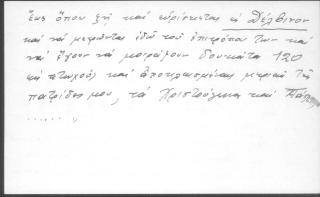 ἕως ὅπου ζῇ καὶ εὑρίσκεται εἰ Δέλβινον
καὶ νὰ μετρῶνται ἐδῶ τοῦ ἐπιτρόπου των καὶ
νὰ ἔχουν νὰ μοιράζουν δουκάτα 120
εἰς πτωχούς καὶ ἀποκρωσμένας μεριαὶ τῆς
πατρίδος μου, τὰ Χριστούγεννα καὶ Πάσχα
.......